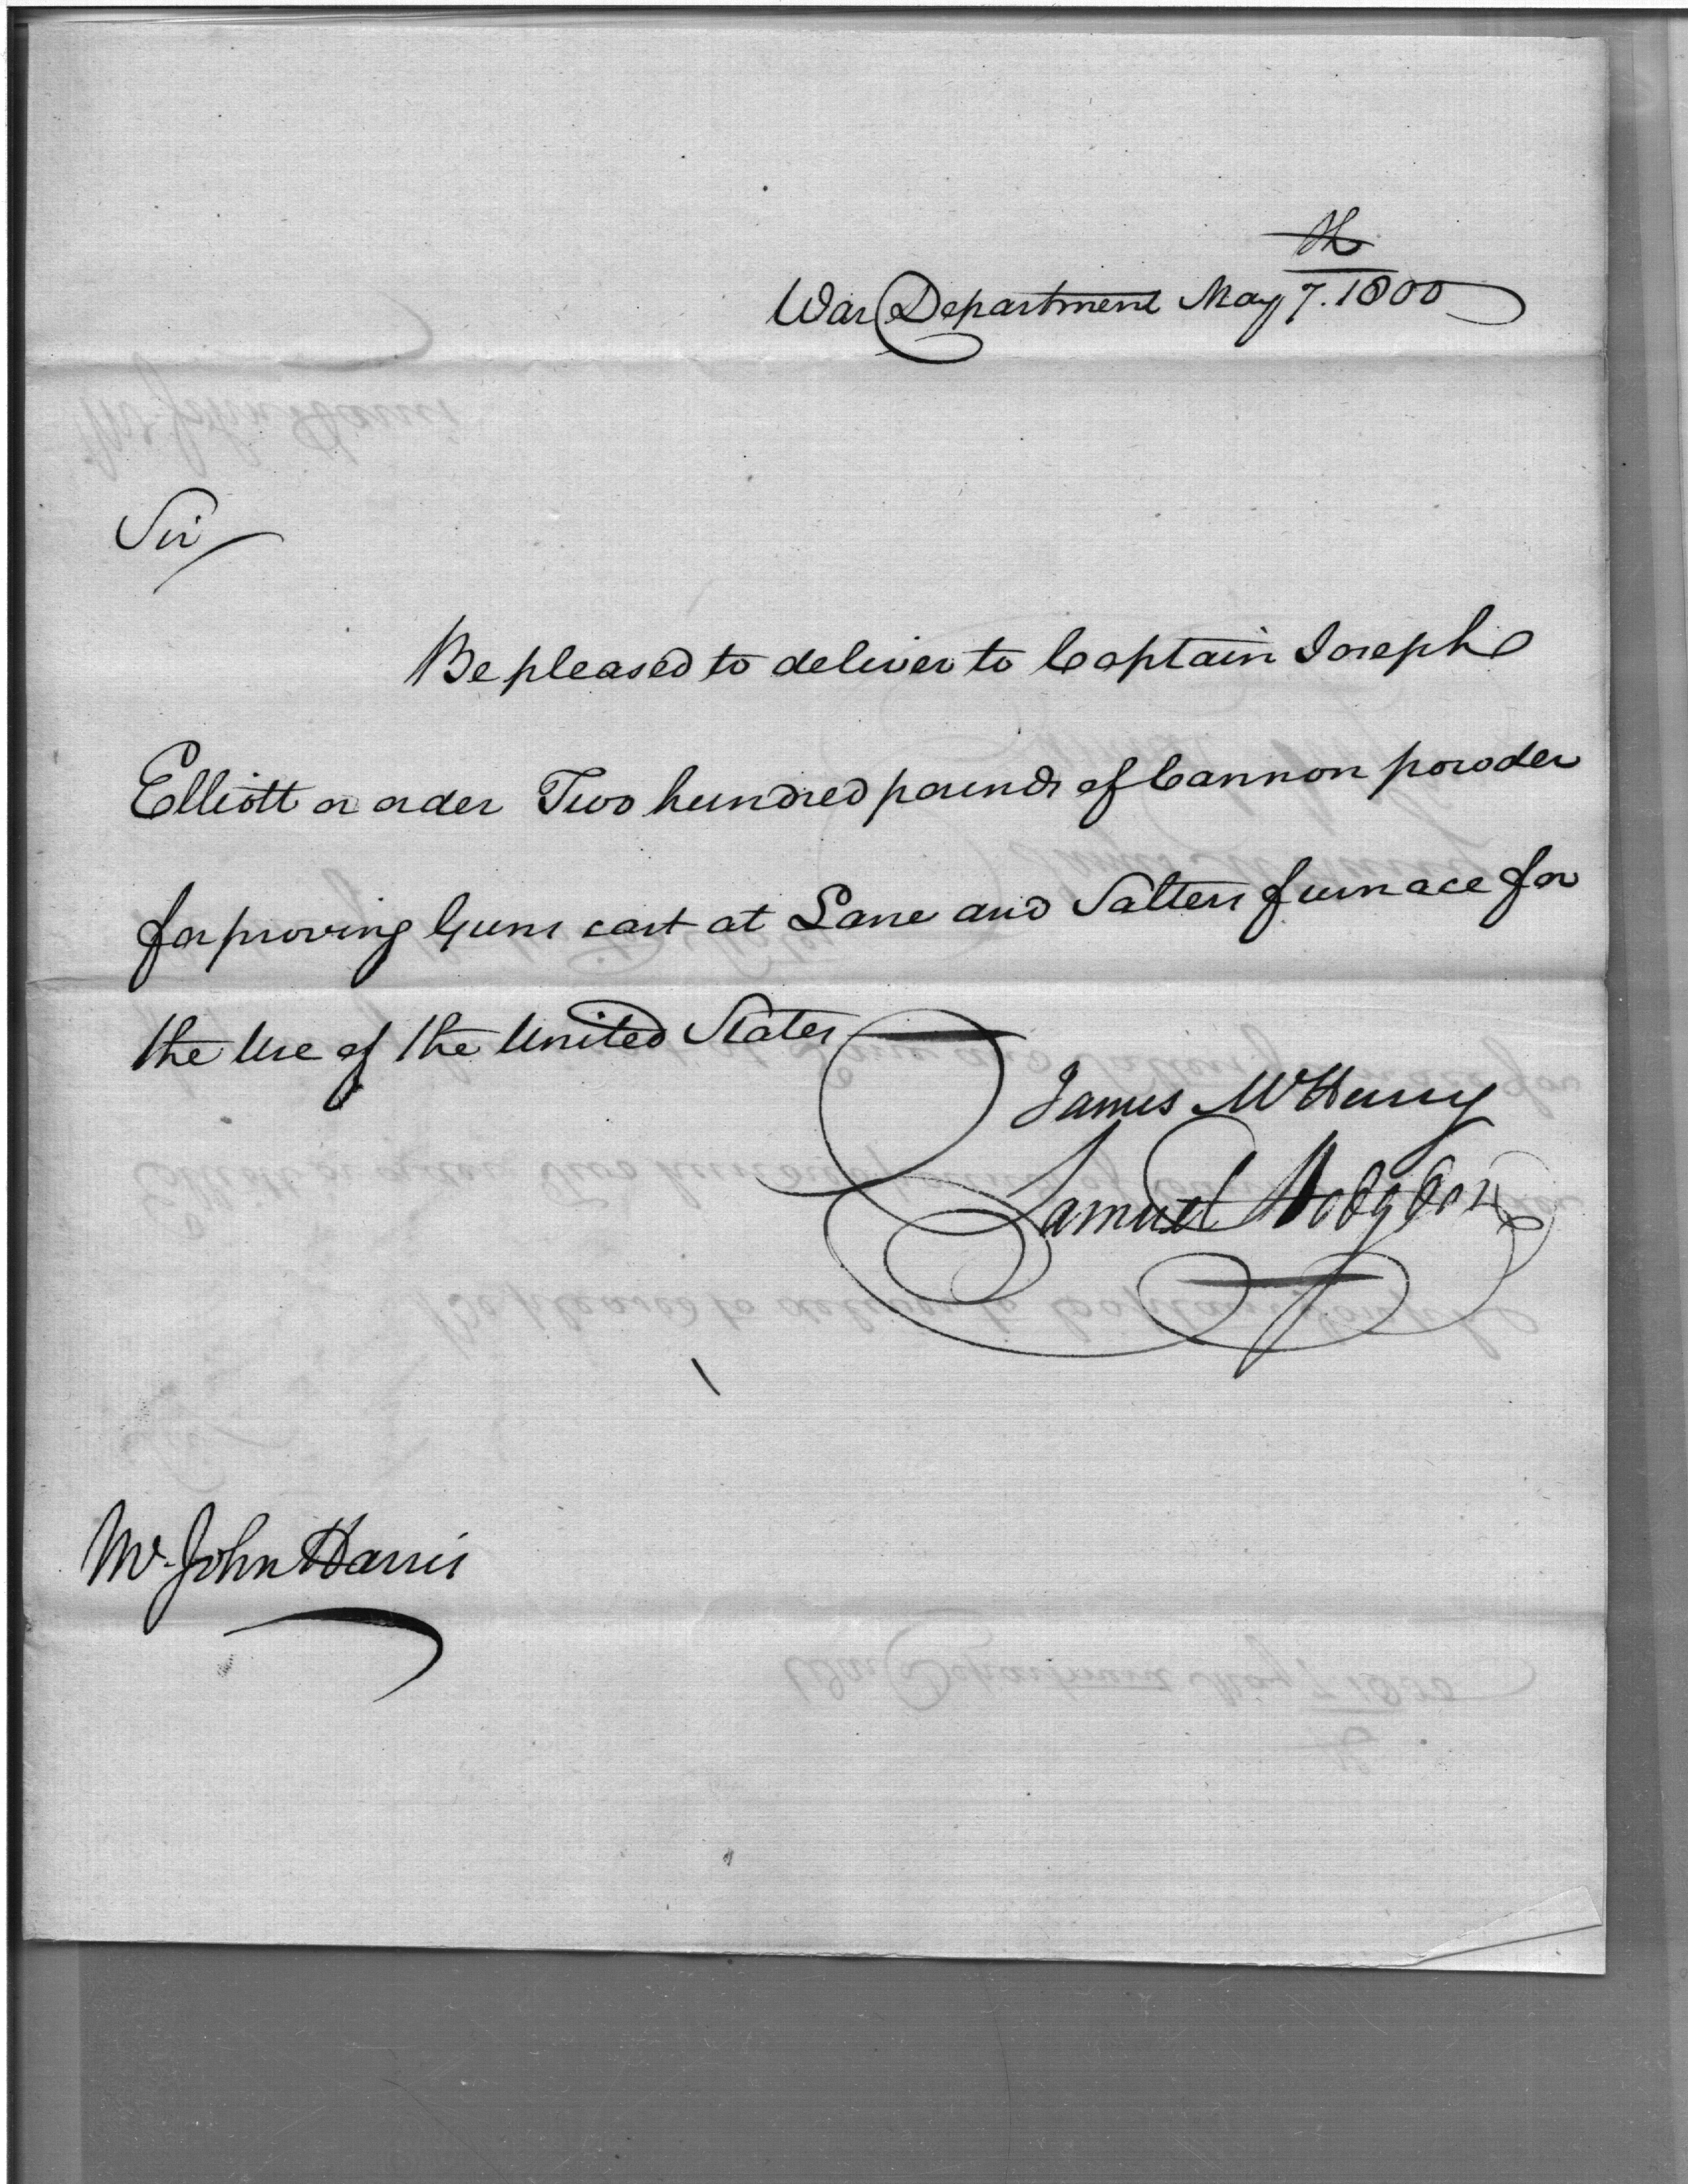 War Department May 7th. 1800
Sir
Be pleased to deliver to Captain Joseph
Elliott or order Two hundred pounds of Cannon powder
for proving Guns cast at Lane and Salters furnace for
the Use of the United States
James McHenry
Samuel Hodgdon
Mr. John Harris